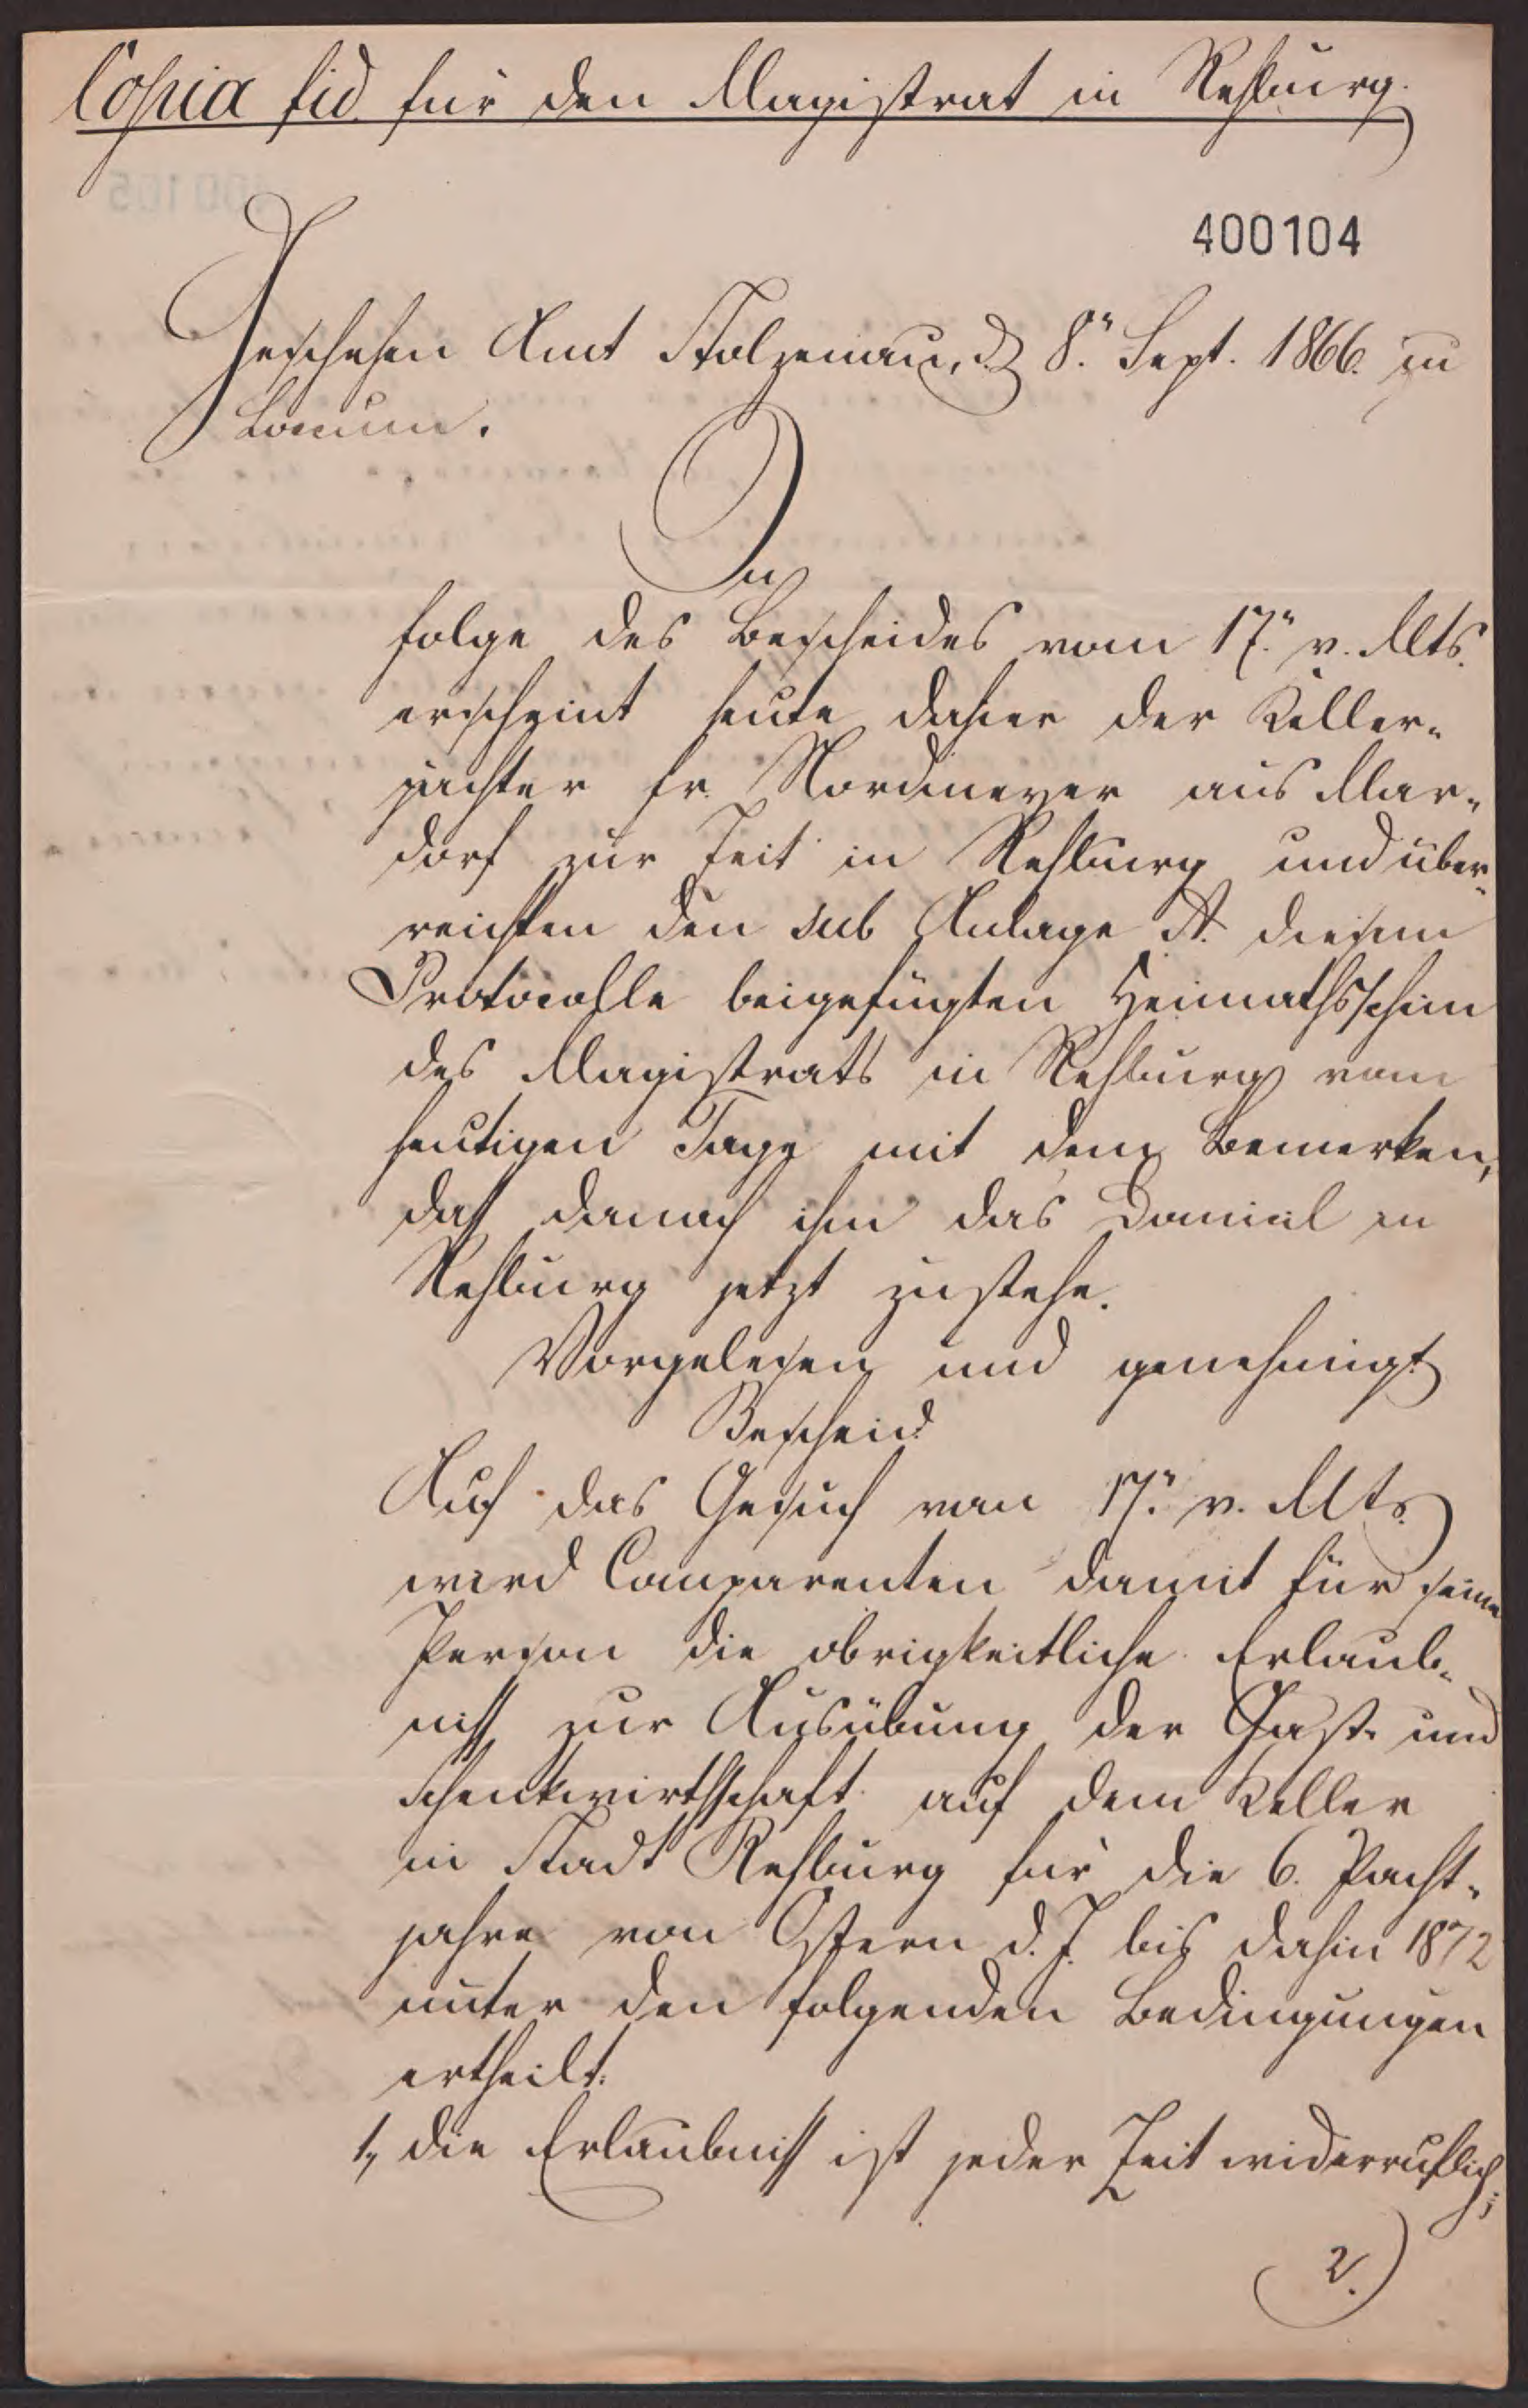 Copia fid. für den Magistrat in Rehburg.
400104
Geschehen Amt Stolzenau, d. 8.n Sept. 1866. zu
Loccum.
In
folge des Bescheides vom 17.n v. Mts.
erscheint heute dahier der Keller-
pächter Fr. Nordmeyer aus Mar-
dorf zur Zeit in Rehburg und über-
reichten den sub Anlage A. diesem
Protocolle beigefügten Heimathsschein
des Magistrats in Rehburg vom
heutigen Tage mit dem Bemerken,
daß danach ihm das Domicil in
Rehburg jetzt zustehe.
Vorgelesen und genehmigt
Bescheid
Auf das Gesuch von 17.n v. Mts.
wird Comparenten damit für seine
Person die obrigkeitliche Erlaub-
niß zur Ausübung der Gast- und
Schenkwirthschaft auf dem Keller
in Stadt Rehburg für die 6. Pacht-
jahre von Ostern d. J. bis dahin 1872
unter den folgenden Bedingungen
ertheilt:
1, die Erlaubniß ist jeder Zeit widerruflich;
2.)